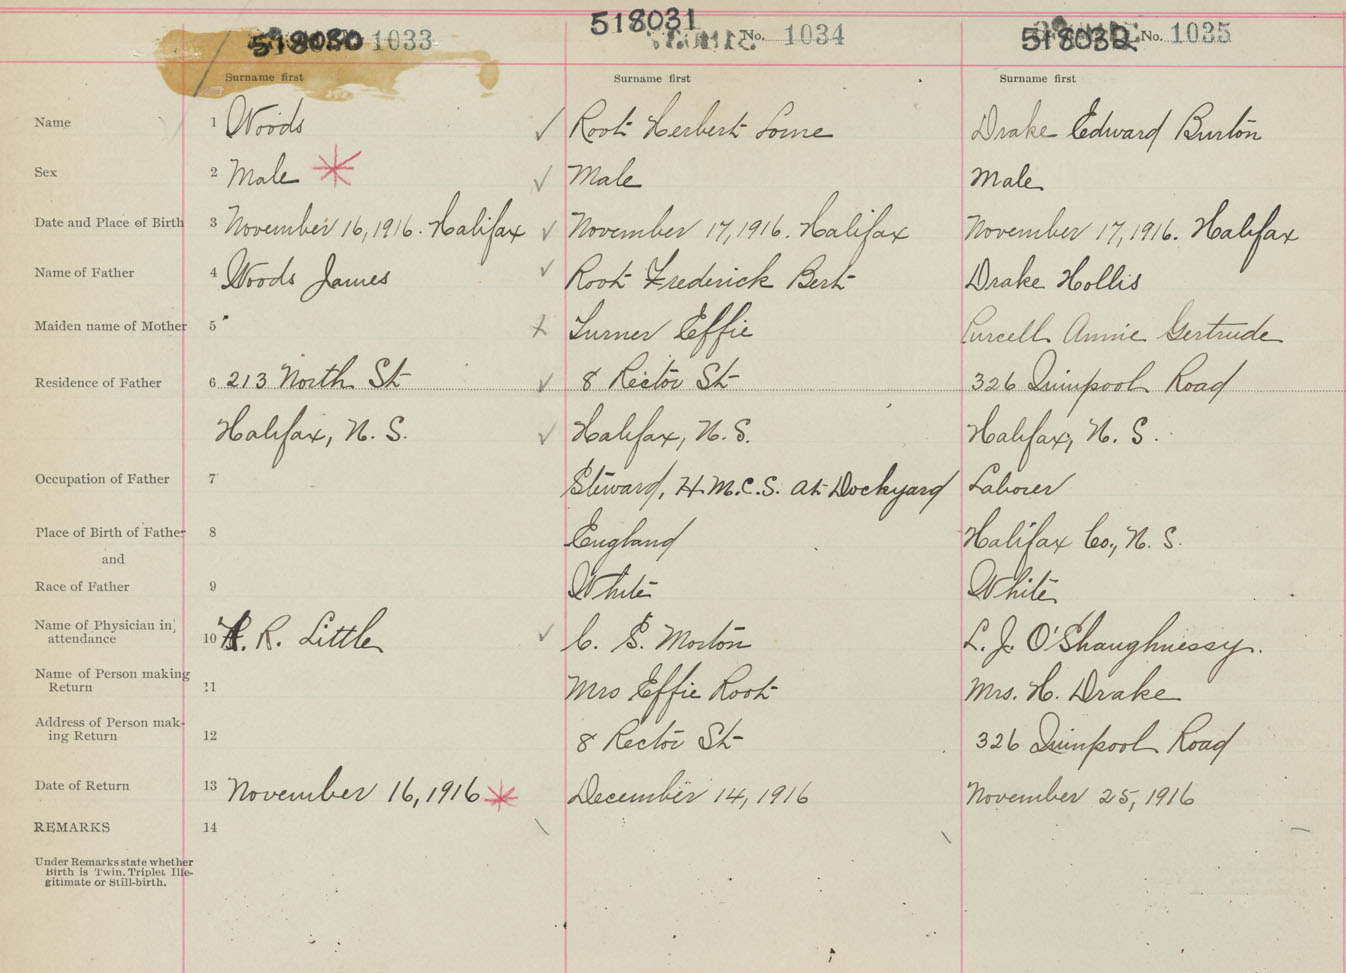 518030 1033 518031 No. 1034 518032 No. 1035
Surname first Surname first Surname first
Name 1 Woods Root Herbert Lorne Drake Edward Burton
Sex 2 Male Male Male
Date and Place of Birth 3 November 16, 1916. Halifax November 17, 1916. Halifax November 17, 1916. Halifax
Name of Father 4 Woods James Root Frederick Bert Drake Hollis
Maiden name of Mother 5 Turner Effie Purcell Annie Gertrude
Residence of Father 6 213 North St 8 Rector St 326 Quinpool Road
Halifax, N. S. Halifax, N. S. Halifax, N. S.
Occupation of Father 7 Steward, H.M.C.S. at Dockyard Laborer
Place of Birth of Father 8 England Halifax Co., N. S.
and
Race of Father 9 White White
Name of Physician in
attendance 10 R. Little C. S. Morton L. J. O'Shaughnessy.
Name of Person making
Return 11 Mrs Effie Root Mrs. H. Drake
Address of Person mak-
ing Return 12 8 Rector St 326 Quinpool Road
Date of Return 13 November 16, 1916 December 14, 1916 November 25, 1916
REMARKS 14
Under Remarks state whether
Birth is Twin, Triplet Ille-
gitimate or Still-birth.